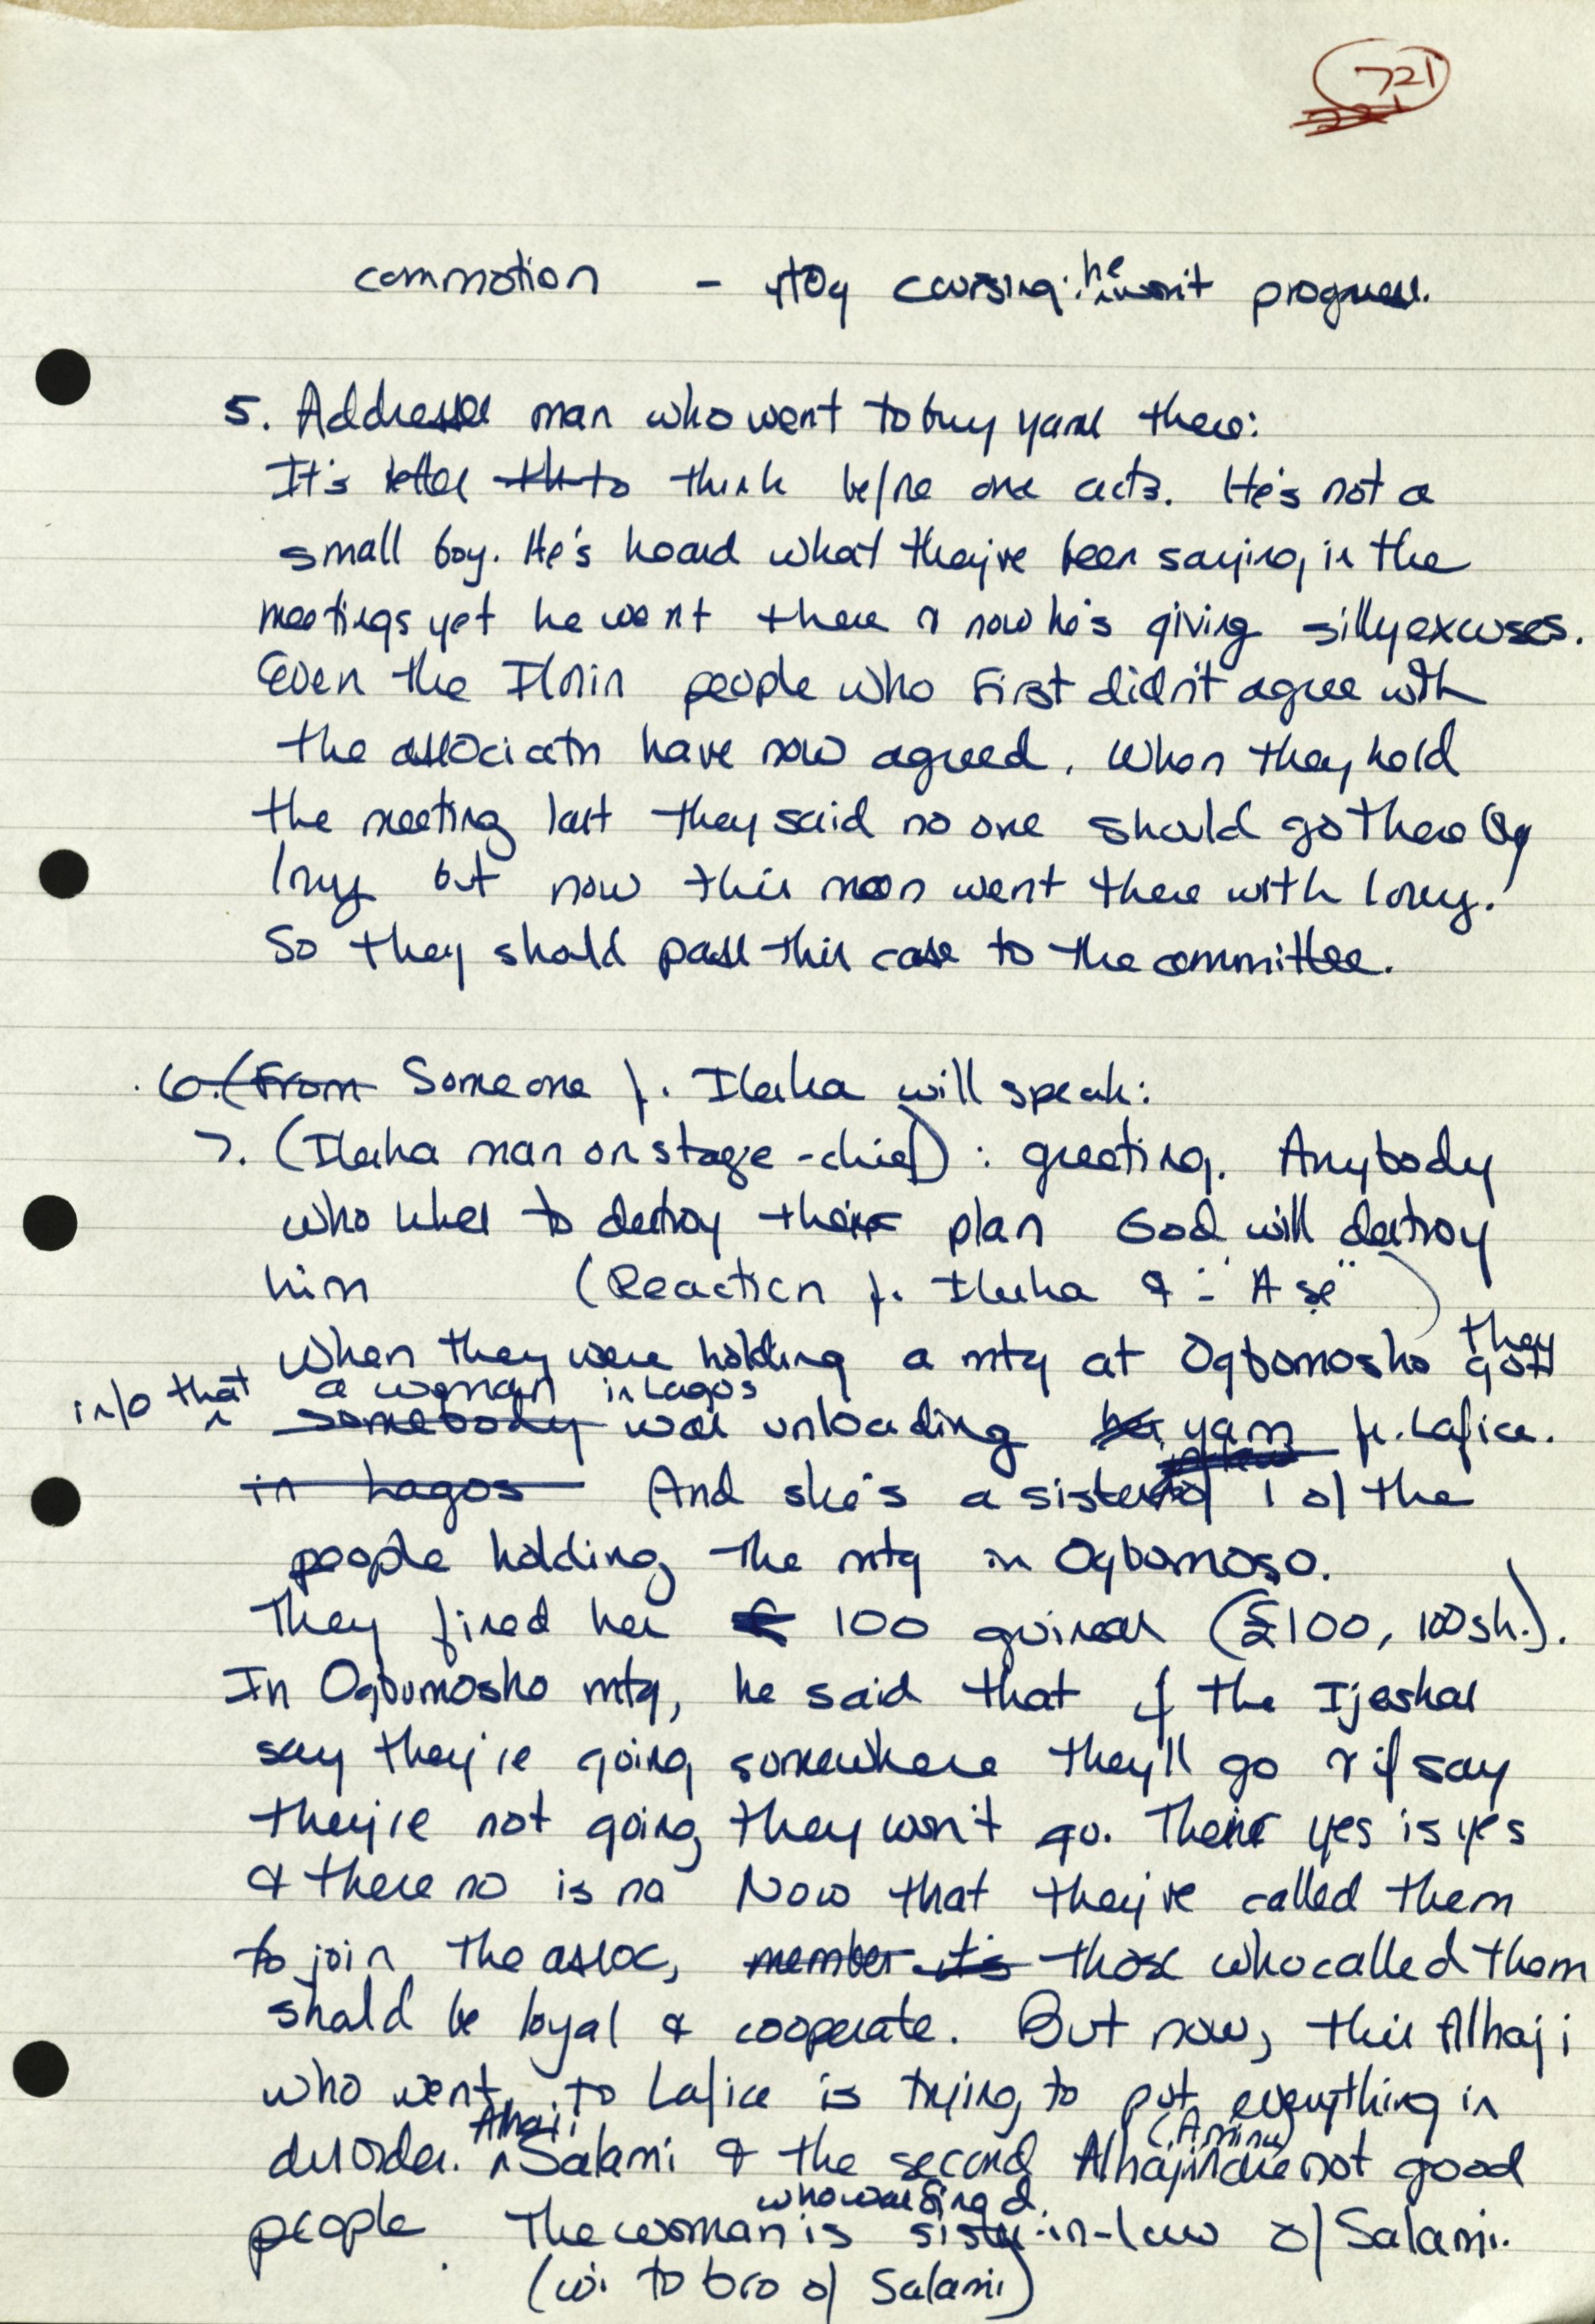 721
commotion - stay cursing: he won't progress.
5. Addresses man who went to buy yams there:
It's better to think before one acts. He's not a
small boy. He's heard what they've been saying in the
meetings yet he went there & now he's giving silly excuses.
Even the Ilorin people who first didn't agree with
the associatn have now agreed. When they hold
the meeting last they said no one should go there by
lorry but now this man went there with lorry.
So they should pass this case to the committee.
6. (From Someone f. Ilesha will speak:
7. (Ilesha man on stage - chief) : greeting. Anybody
who likes to destroy their plan God will destroy
him (Reaction f. Ilesha & : "Aṣẹ")
When they were holding a mtg at Ogbomosho they got
info that a woman in Lagos was unloading yam fr. Lafia.
in Lagos And she's a sister of 1 of the
people holding the mtg in Ogbomoso.
They fined her 100 guineas (£100, 100sh.).
In Ogbomosho mtg, he said that if the Ijeshas
say they're going somewhere they'll go & if say
they're not going they won't go. Their yes is yes
& there no is no Now that they've called them
to join the assoc, member it's those who called them
should be loyal & cooperate. But now, this Alhaji
who went to Lafia is trying to put everything in
disorder. Alhaji Salami & the second Alhaji (Aminu) are not good
people. The woman who was fined is sister-in-law of Salami.
(wi. to bro of Salami)